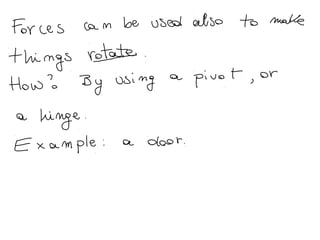 Forces can be used also to make
things rotate.
How? By using a pivot, or
a hinge.
Example: a door.